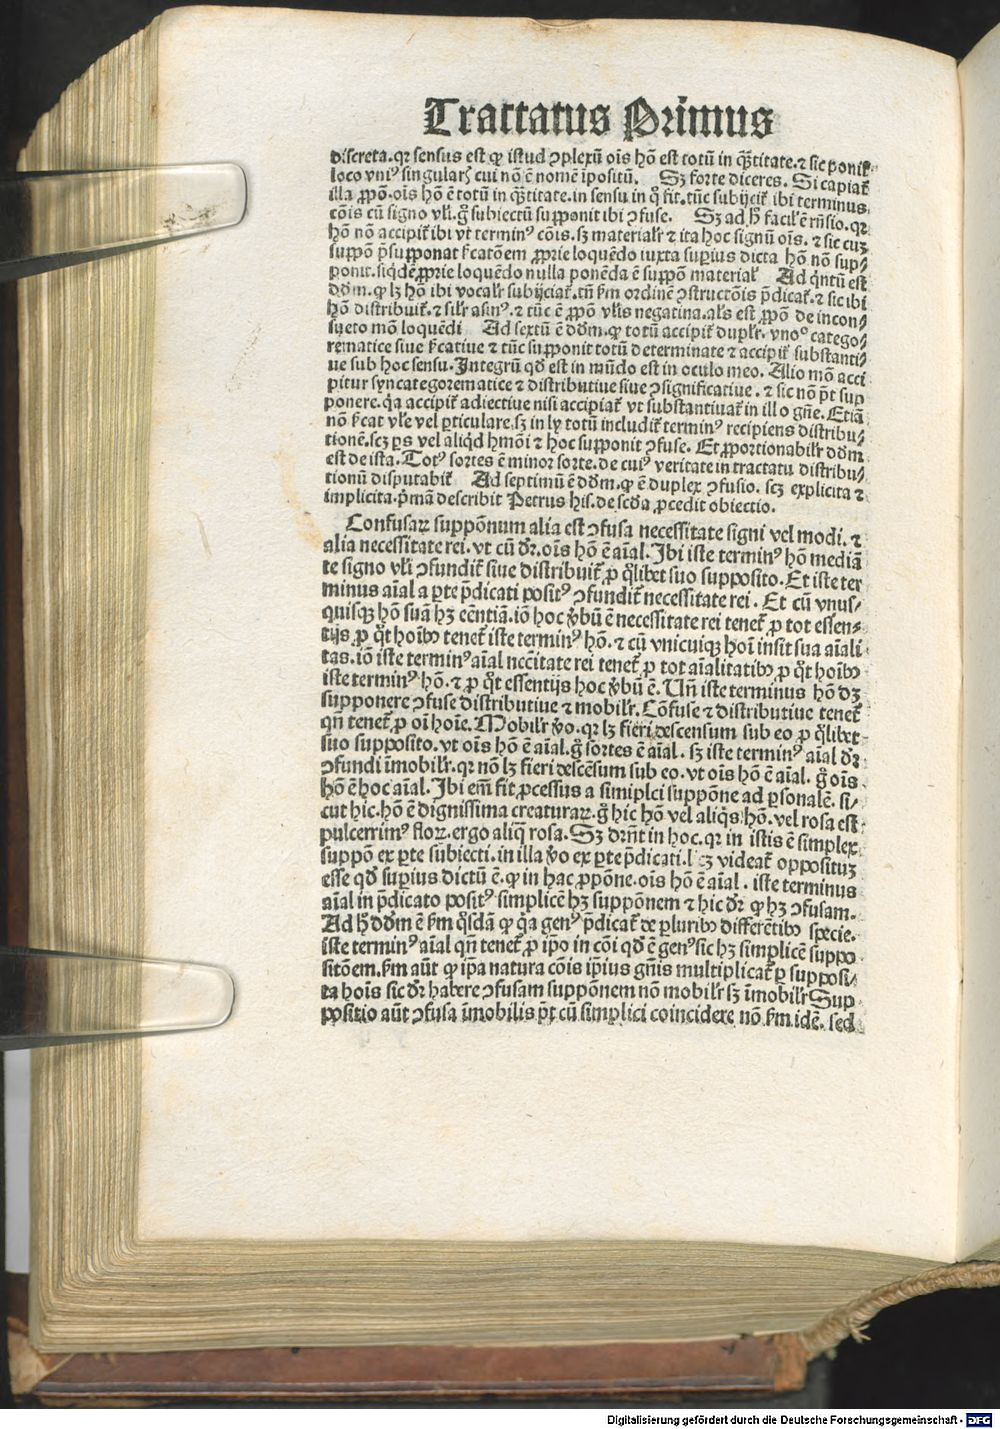 Tractatus Primus
discreta. qꝛ sensus est ꝙ istud ꝯplexū oīs hō est totū in q̄titate. ⁊ sic ponit᷑
loco vniꝰ singularꝭ cui nō ē nomē īpositū. Sꝫ forte diceres. Si capiat᷑
illa ꝓpō. oīs hō ē totū in q̄titate. in sensu in q̊ fit. tūc subijcit᷑ ibi terminus
cōis cū signo vl̓i. g̊ subiectū supponit ibi ꝯfuse. Sꝫ ad h̓ facil̓ ē rn̄sio. qꝛ
hō nō accipit᷑ ibi vt terminꝰ cōis. sꝫ material̓r ⁊ ita hoc signū oīs. ⁊ sic cuꝫ
suppō p̄supponat s̓catōem ꝓprie loquēdo iuxta superius dicta hō nō sup⸗
ponit. siqdē ꝓprie loquēdo nulla ponēda ē suppō material̓ Ad q̄ntū est
dd̓m. ꝙ lꝫ hō ibi vocal̓r subijciat᷑. tn̄ s̓m ordinē ꝯstructōis p̄dicat᷑. ⁊ sic ibi
hō distribuit᷑. ⁊ sil̓r asinꝰ. ⁊ tūc ē ꝓpō vl̓is negatina. al̓s est ꝓpō de incon⸗
sueto mō loquēdi Ad sextū ē dd̓m. ꝙ totū accipit᷑ dupl̓r. vno° catego⸗
rematice siue s̓catiue ⁊ tūc supponit totū determinate ⁊ accipit᷑ substanti⸗
ue sub hoc sensu. Integrū qd̓ est in mūdo est in oculo meo. Alio mō acci
pitur syncategorematice ⁊ distributiue siue ꝯsignificatiue. ⁊ sic nō pōt sup
ponere. q̓a accipit᷑ adiectiue nisi accipiat᷑ vt substantiuat᷑ in illo gn̄e. Etiā
nō s̓cat vl̓e vel ꝑticulare, sꝫ in ly totū includit᷑ terminꝰ recipiens distribu⸗
tionē. scꝫ ꝑs vel aliqd̓ hmōi ⁊ hoc supponit ꝯfuse. Et ꝓportionabil̓r dd̓m
est de ista. Totꝰ sortes ē minor sorte. de cuiꝰ veritate in tractatu distribu⸗
tionū disputabit᷑ Ad septimū ē dd̓m. ꝙ ē duplex ꝯfusio. scꝫ explicita ⁊
implicita. p̓mā describit Petrus his. de scd̓a ꝓcedit obiectio.
Confusaꝝ suppōnum alia est ꝯfusa necessitate signi vel modi. ⁊
alia necessitate rei. vt cū dr̄. oīs hō ē aīal. Ibi iste terminꝰ hō mediā
te signo vl̓i ꝯfundit᷑ siue distribuit᷑ ꝓ q̊libet suo supposito. Et iste ter
minus aīal a ꝑte p̄dicati positꝰ ꝯfundit᷑ necessitate rei. Et cū vnus⸗
quisqꝫ hō suā hꝫ eēntiā. iō hoc v̓bū ē necessitate rei tenet᷑ ꝓ tot essen⸗
tijs ꝓ q̊t hoībꝰ tenet᷑ iste terminꝰ hō. ⁊ cū vnicuiqꝫ hoī insit sua aīali
tas. iō iste terminꝰ aīal nccītate rei tenet᷑ ꝓ tot aīalitatibꝰ ꝓ q̊t hoībꝰ
iste terminꝰ hō. ⁊ ꝓ q̊t essentijs hoc v̓bū ē. Un̄ iste terminus hō dꝫ
supponere ꝯfuse distributiue ⁊ mobil̓r. Cōfuse ⁊ distributiue tenet᷑
qn̄ tenet᷑ ꝓ oī hoīe. Mobil̓r v̓o. qꝛ lꝫ fieri descensum sub eo ꝓ q̊libet
suo supposito. vt oīs hō ē aīal. g̊ sortes ē aīal. sꝫ iste terminꝰ aīal dr̄
ꝯfundi īmobil̓r. qꝛ nō lꝫ fieri descēsum sub eo. vt oīs hō ē aīal. g̊ oīs
hō ē hoc aīal. Ibi em̄ fit ꝓcessus a simiplci suppōne ad ꝑsonalē. si⸗
cut hic. hō ē dignissima creaturaꝝ. g̊ hic hō vel aliq̓s hō. vel rosa est
pulcerrimꝰ floꝝ. ergo aliq̓ rosa. Sꝫ dr̄nt in hoc. qꝛ in istis ē simplex
suppō ex ꝑte subiecti. in illa v̓o ex ꝑte p̄dicati. videat᷑ oppositūꝫ
esse qd̓ superius dictū ē. ꝙ in hac ꝓpōne. oīs hō ē aīal. iste terminus
aīal in p̄dicato positꝰ simplicē hꝫ suppōnem ⁊ hic dr̄ ꝙ hꝫ ꝯfusam.
Ad h̓ dd̓m ē s̓m q̊sdā ꝙ q̓a genꝰ p̄dicat᷑ de pluribꝰ differētibꝰ specie.
iste terminꝰ aīal qn̄ tenet᷑ ꝓ ip̄o in cōi qd̓ ē genꝰ sic hꝫ simplicē suppo
sitōem. s̓m aūt ꝙ ip̄a natura cōis ip̄ius gn̄is multiplicat᷑ ꝑ supposi⸗
ta hoīs sic dr̄ habere ꝯfusam suppōnem nō mobil̓r sꝫ īmobil̓r Sup
positio aūt ꝯfusa īmobilis pōt cū simplici coincidere nō s̓m idē. sed
Digitalisierung gefördert durch die Deutsche Forschungsgemeinschaft - DFG